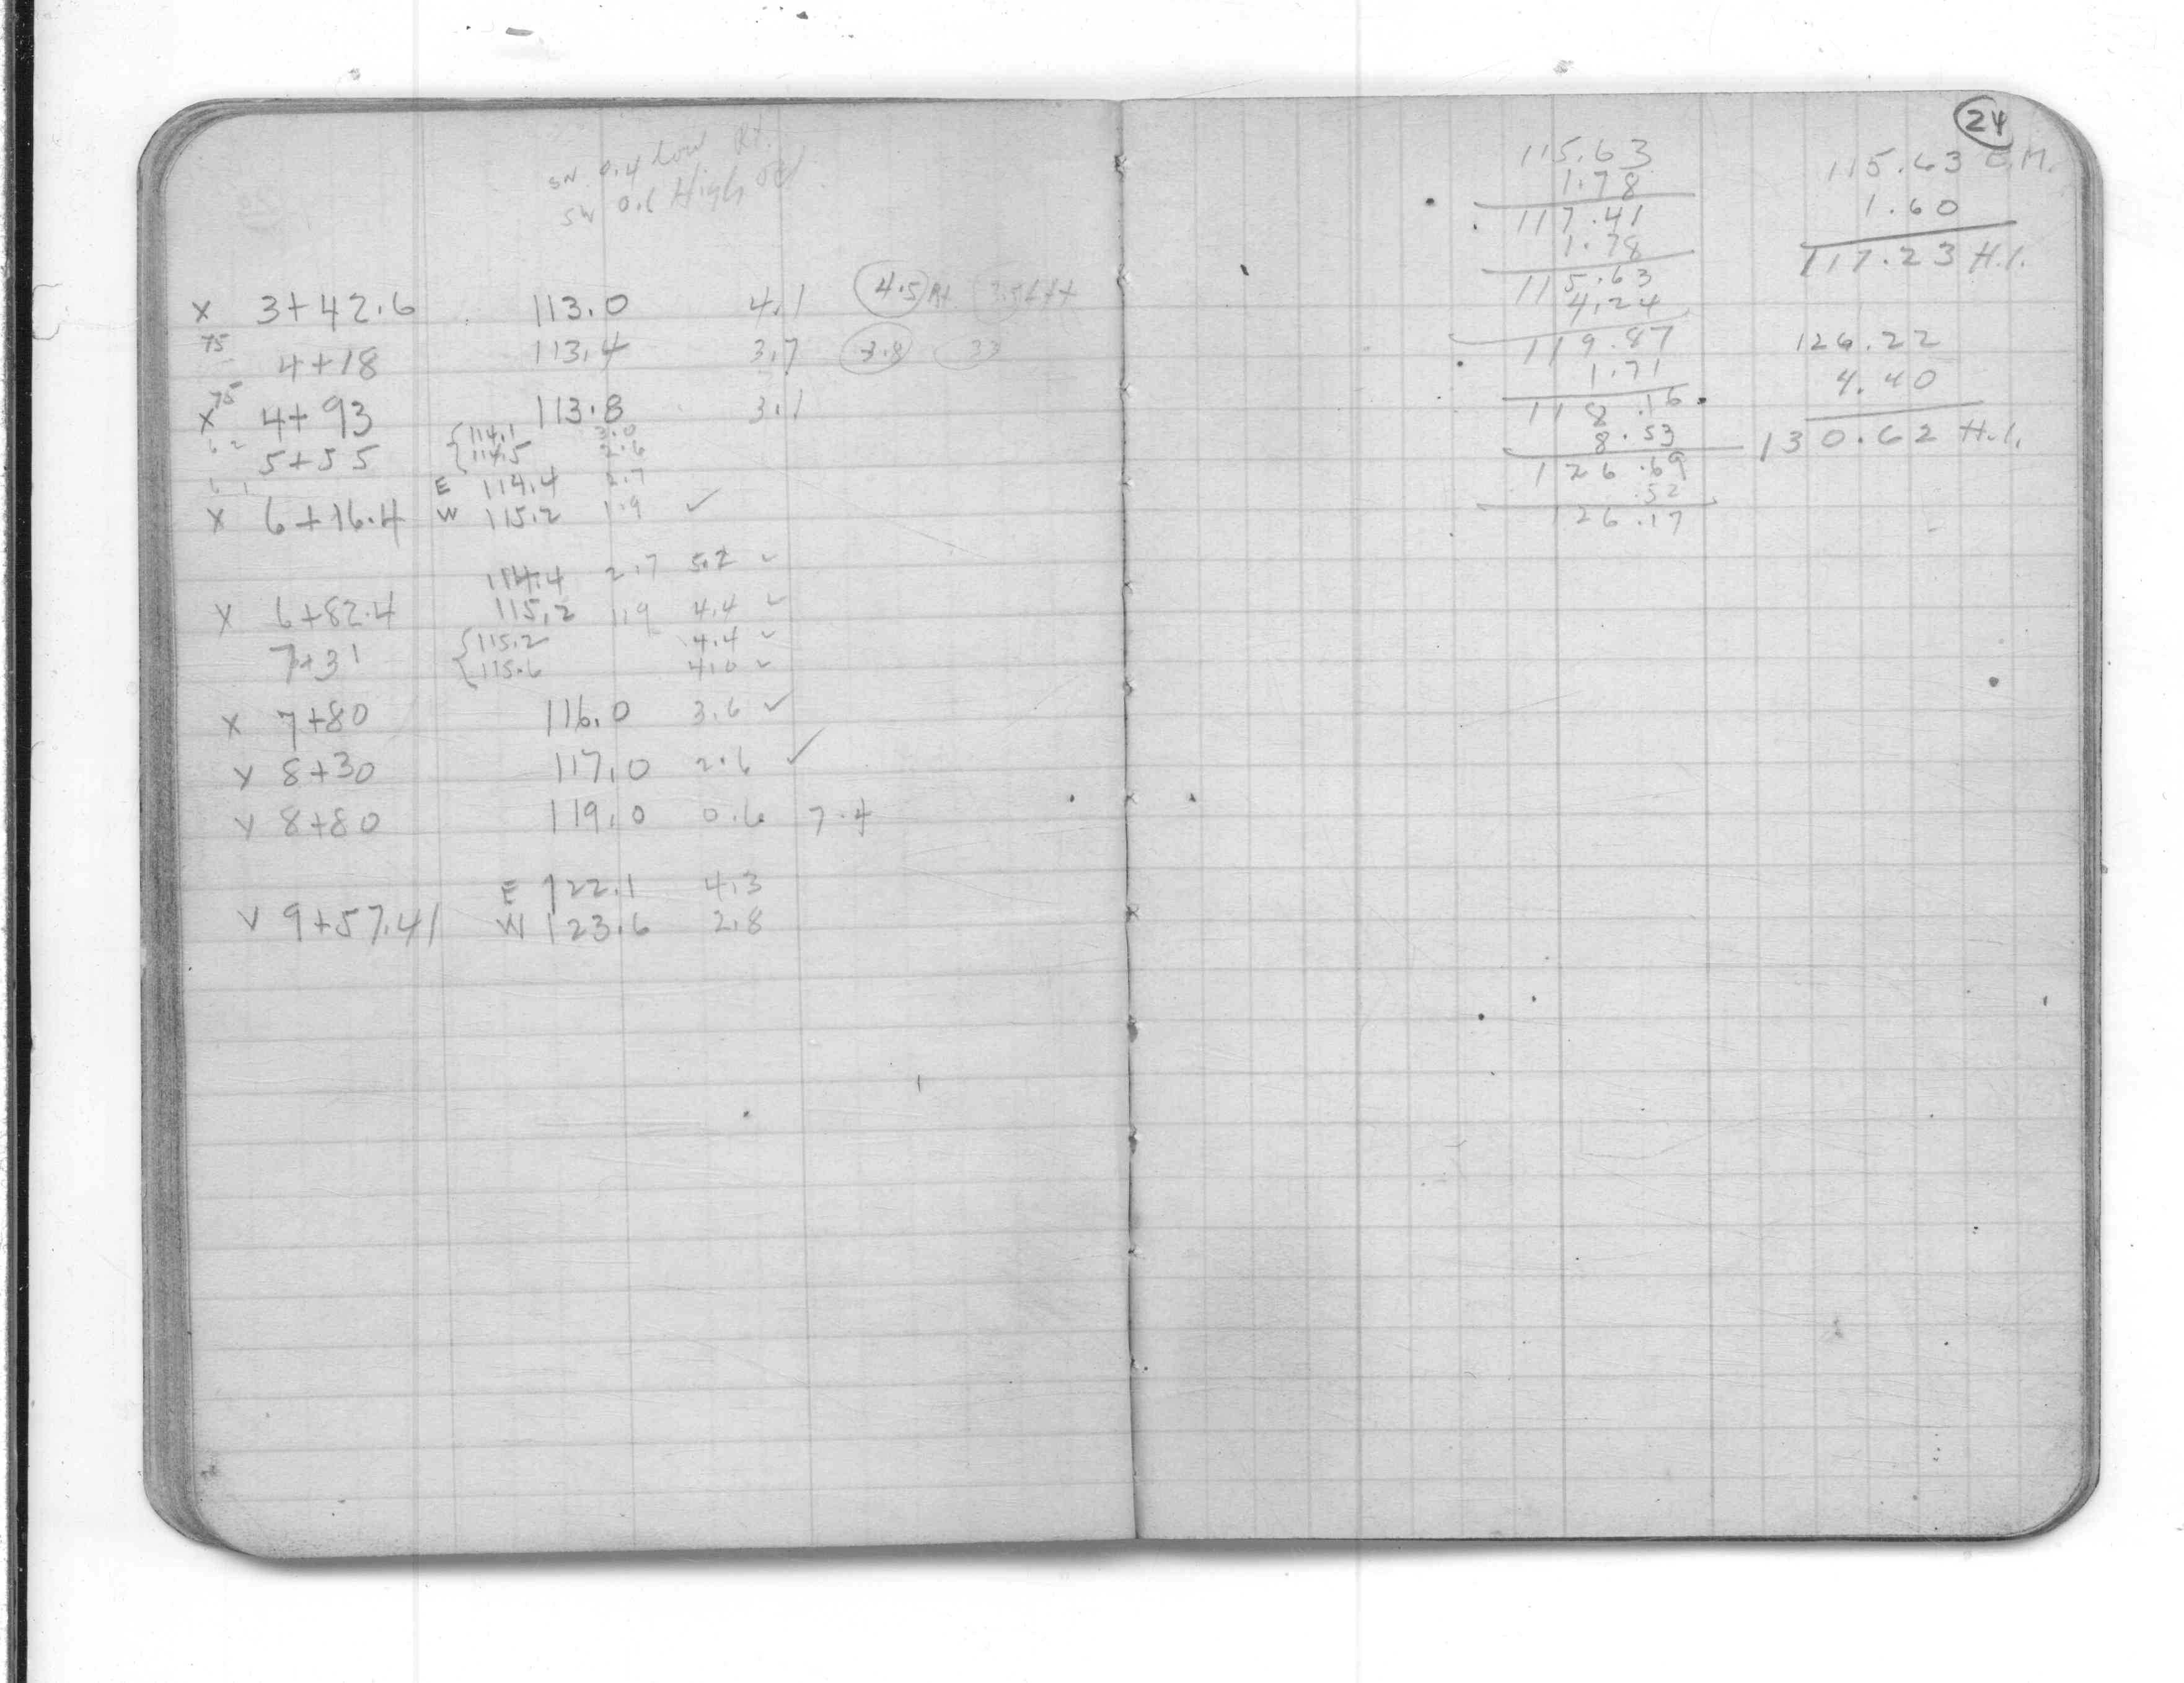 SW 0.4 Low Rt.
SW 0.6 High
X 3+42.6 113.0 4.1 4.5 Rt. 3.5 Lft
75
4+18 113.4 3.7 3.8 33
75
X 4+93 113.8 3.1
114.1 3.0
62
5+55 114.5 2.6
61
E 114.4 2.7
X 6+16.4 W 115.2 1.9 ✓
114.4 2.7 5.2 ✓
X 6+82.4 115.2 1.9 4.4 ✓
115.2 4.4 ✓
7+31
115.6 4.0 ✓
X 7+80 116.0 3.6 ✓
Y 8+30 117.0 2.6 ✓
Y 8+80 119.0 0.6 7.4
E 122.1 4.3
V 9+57.41 W 123.6 2.8
24
115.63
1.78
117.41
1.78
115.63
4.24
119.87
1.71
118.16
8.53
126.69
.52
126.17
115.63 B.M.
1.60
117.23 H.I.
126.22
4.40
130.62 H.I.